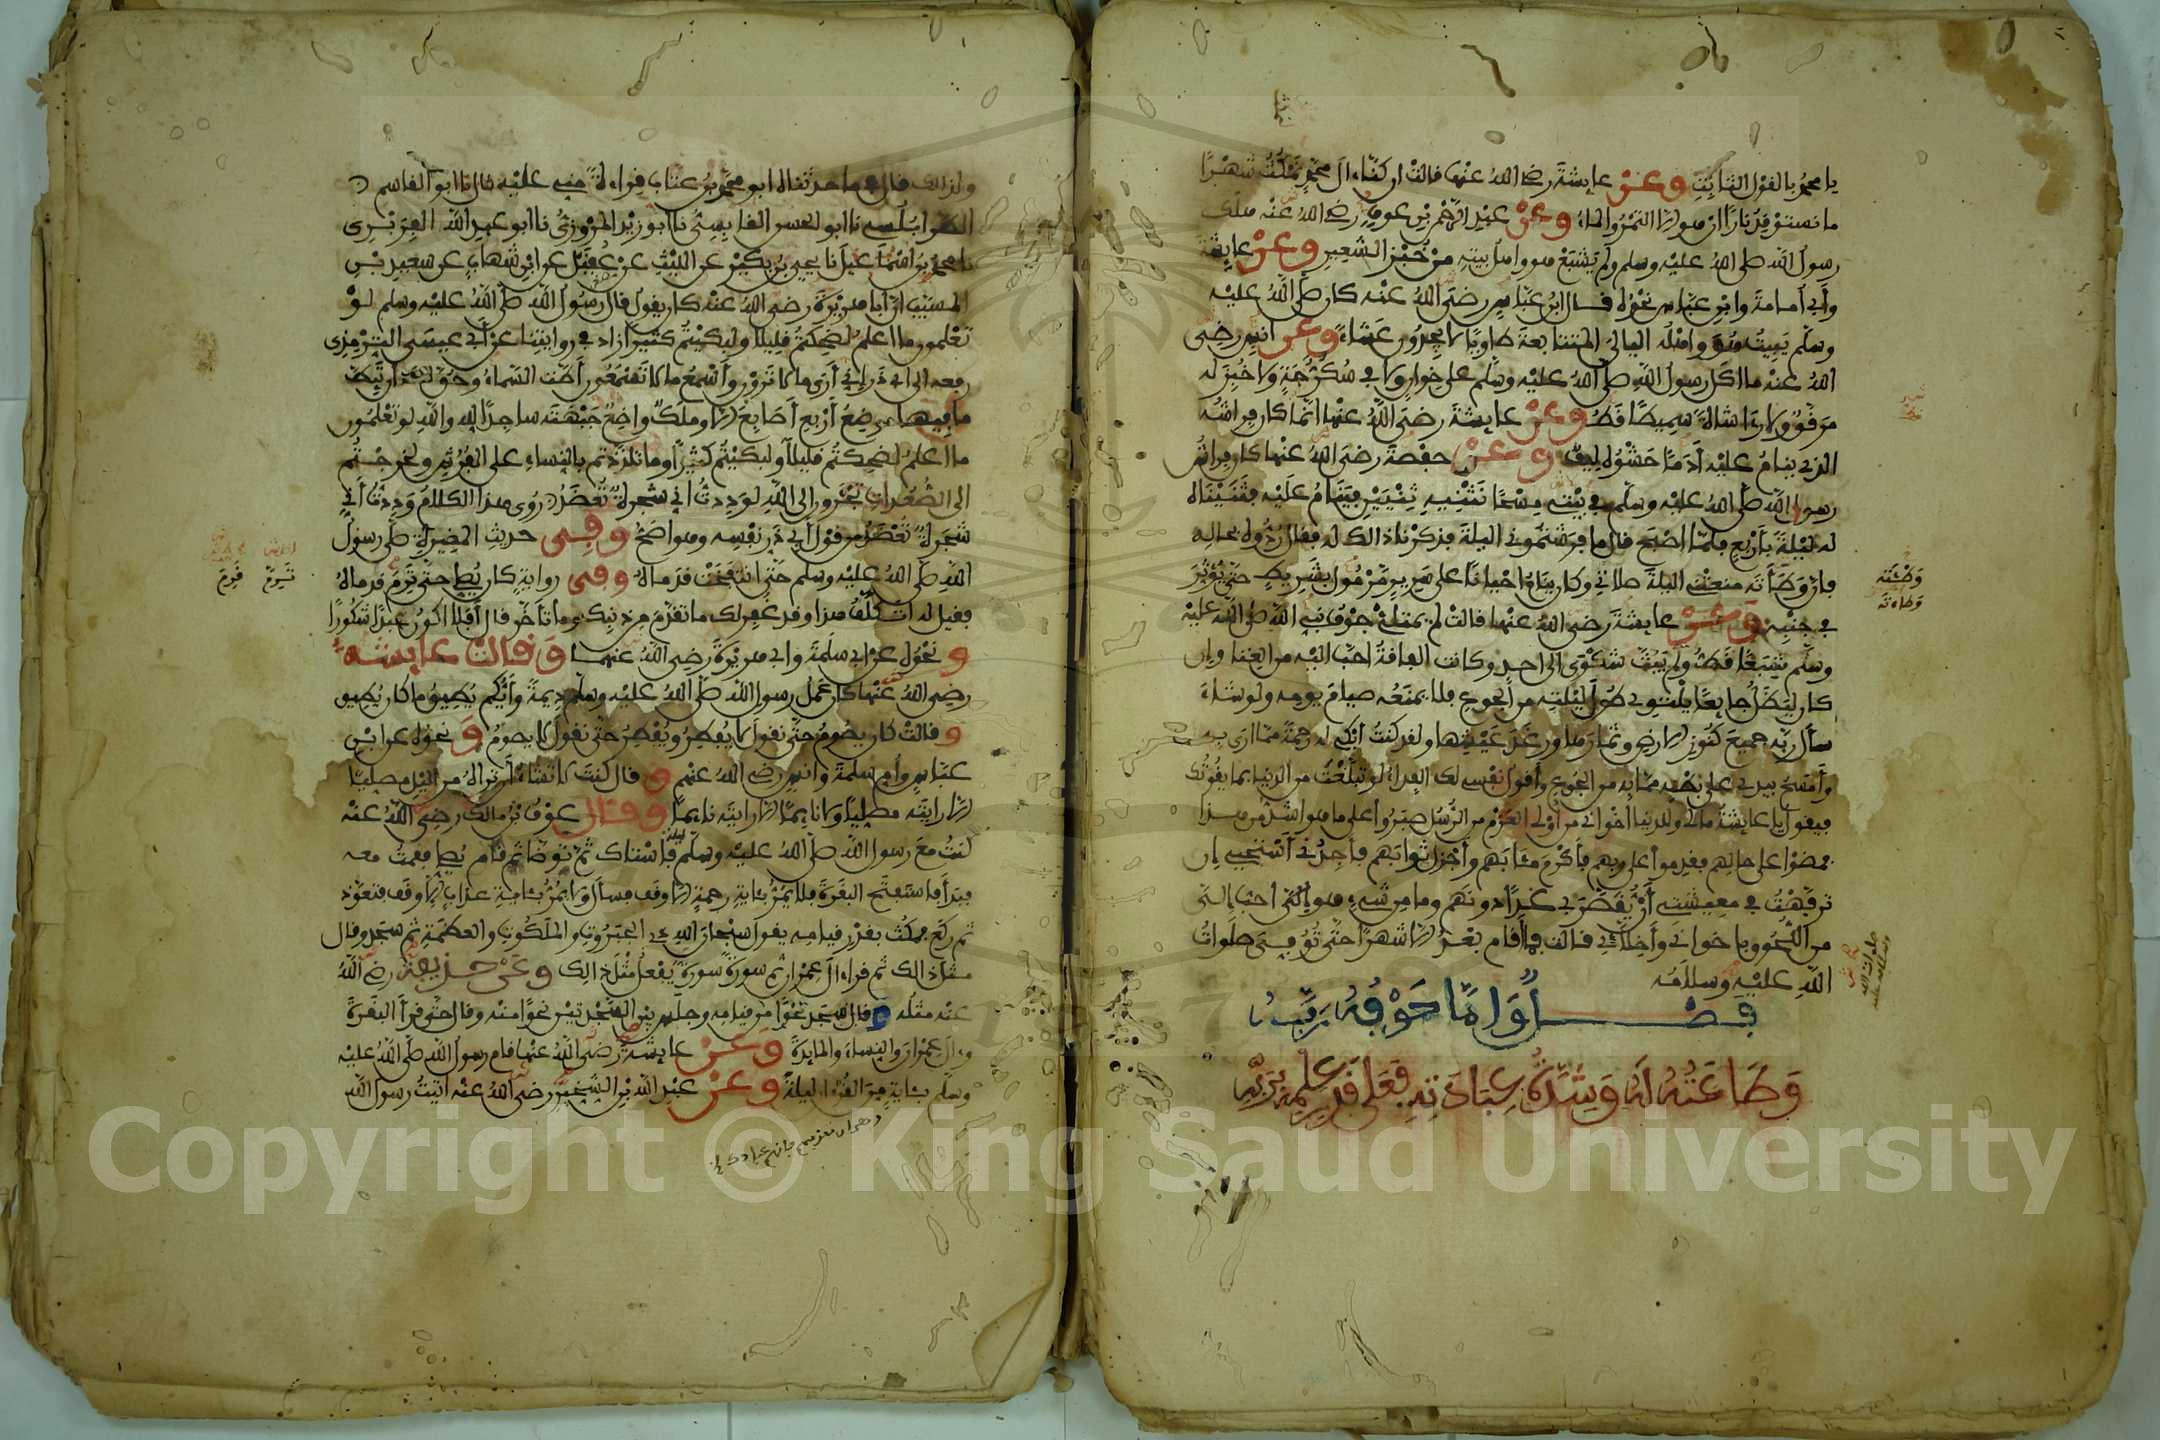 يا محمد بالقول الثابت وعن عايشة رضي الله عنها قالت ان كنا ءال محمد نمكث شهرا
ما نستوقد نارا ان هو الا التمر والماء وعن عبد الرحمن بن عوف رضي الله عنه هلك
رسول الله صلى الله عليه وسلم ولم يشبع هو واهل بيته من خبز الشعير وعن عايشة
وأبي أمامة وابن عباس نحوه قال ابن عباس رضي الله عنه كان صلى الله عليه
وسلم يبيت هو وأهله الليالي المتتابعة طاويا لا يجدون عشاء وعن انس رضي
الله عنه ما اكل رسول الله صلى الله عليه وسلم على خوان ولا في سكرجة ولا خبز له
مرقق ولا رءا شاة سميطا قط وعن عايشة رضي الله عنها انما كان فراشه
الذي ينام عليه أدما حشوه ليف وعن حفصة رضي الله عنها كان فراش
رسول الله صلى الله عليه وسلم في بيته مسحا نثنيه ثنيين فينام عليه فثنيناه
له ليلة بأربع فلما اصبح قال ما فرشتموني الليلة فذكرنا ذالك له فقال ردوه بحاله
فان وطأته منعتني الليلة صلاتي وكان ينام احيانا على سرير مزمول بشريط حتى يؤثر
في جنبه وعن عايشة رضي الله عنها قالت لم يمتلئ جوف نبي الله صلى الله عليه
وسلم شبعا قط ولم يبث شكوى الى احد وكانت الفاقة احب اليه من الغنا وان
كان ليظل جايعا يلتوي طول ليلته من الجوع فلا يمنعه صيام يومه ولو شاء
سأل ربه جميع كنوز الارض وثمارها ورغد عيشها ولقد كنت ابكي له رحمة مما ارى به
وأمسح بيدي على بطنه مما به من الجوع وأقول نفسي لك الفداء لو تبلغت من الدنيا بما يقوتك
فيقول يا عايشة ما لي وللدنيا اخواني من أولى العزم من الرسل صبروا على ما هو اشد من هذا
فمضوا على حالهم فقدموا على ربهم فأكرم مئابهم وأجزل ثوابهم فأجدني أستحيي ان
ترفهت في معيشتي أن يقصر بي غدا دونهم وما من شيء هو إلي احب إلي
من اللحوق باخواني وأخلائي قالت فما أقام بعد الا شهرا حتى توفي صلوات
الله عليه وسلامه
فصل وأما خوفه ربه
وطاعته له وشدة عبادته فعلى قدر علمه بربه
وطئته
وطاءته
ولذلك قال فيما حدثناه ابو محمد بن عتاب قراءة مني عليه قال نا ابو القاسم
الطرابلسي نا ابو الحسن القابسي نا ابو زيد المروزي نا ابو عبد الله الفربري
نا محمد بن اسماعيل نا يحيى بن بكير عن الليث عن عقيل عن ابن شهاب عن سعيد بن
المسيب ان أبا هريرة رضي الله عنه كان يقول قال رسول الله صلى الله عليه وسلم لو
تعلمون ما اعلم لضحكتم قليلا ولبكيتم كثيرا زاد في روايتنا عن أبي عيسى الترمذي
رفعه الى ابي ذر إني أرى ما لا ترون وأسمع ما لا تسمعون أطت السماء وحق لها ان تيط
ما فيها موضع أربع أصابع الا وملك واضع جبهته ساجدا لله والله لو تعلمون
ما اعلم لضحكتم قليلا ولبكيتم كثيرا وما تلذذتم بالنساء على الفرش ولخرجتم
الى الصعدات تجأرون إلى الله لوددت أني شجرة تعضد روي هذا الكلام وددت أني
شجرة تعضد من قول أبي ذر نفسه وهو اصح وفي حديث المغيرة صلى رسول
الله صلى الله عليه وسلم حتى انتفخت قدماه وفي رواية كان يصلي حتى ترم قدماه
فقيل له اتكلف هذا وقد غفر لك ما تقدم من ذنبك وما تأخر قال أفلا اكون عبدا شكورا
و نحوه عن ابي سلمة وابي هريرة رضي الله عنهما وقالت عايشة
رضي الله عنها كان عمل رسول الله صلى الله عليه وسلم ديمة وأيكم يطيق ما كان يطيق
و قالت كان يصوم حتى نقول لا يفطر ويفطر حتى نقول لا يصوم و نحوه عن ابن
عباس وأم سلمة وانس رضي الله عنهم و قال كنت لا تشاء أن تراه من اليل مصليا
الا رايته مصليا ولا نايما الا رايته نايما وقال عوف بن مالك رضي الله عنه
كنت مع رسول الله صلى الله عليه وسلم ليلة فاستاك ثم توضا ثم قام يصلي فقمت معه
فبدأ فاستفتح البقرة فلا يمر بئاية رحمة الا وقف فسأل ولا يمر بئاية عذاب الا وقف فتعوذ
ثم ركع فمكث بقدر قيامه يقول سبحان الله ذي الجبروت والملكوت والعظمة ثم سجد وقال
مثل ذالك ثم قراء ال عمران ثم سورة سورة يفعل مثل ذالك وعن حذيفة رضي الله
عنه مثله و قال سجد نحوا من قيامه وجلس بين السجدتين نحوا منه وقال حتى قرأ البقرة
وءال عمران والنساء والمايدة وعن عايشة رضي الله عنها قام رسول الله صلى الله عليه
وسلم بئاية من القرءان ليلة وعن عبد الله بن الشخير رضي الله عنه أتيت رسول الله
Copyright © King Saud University